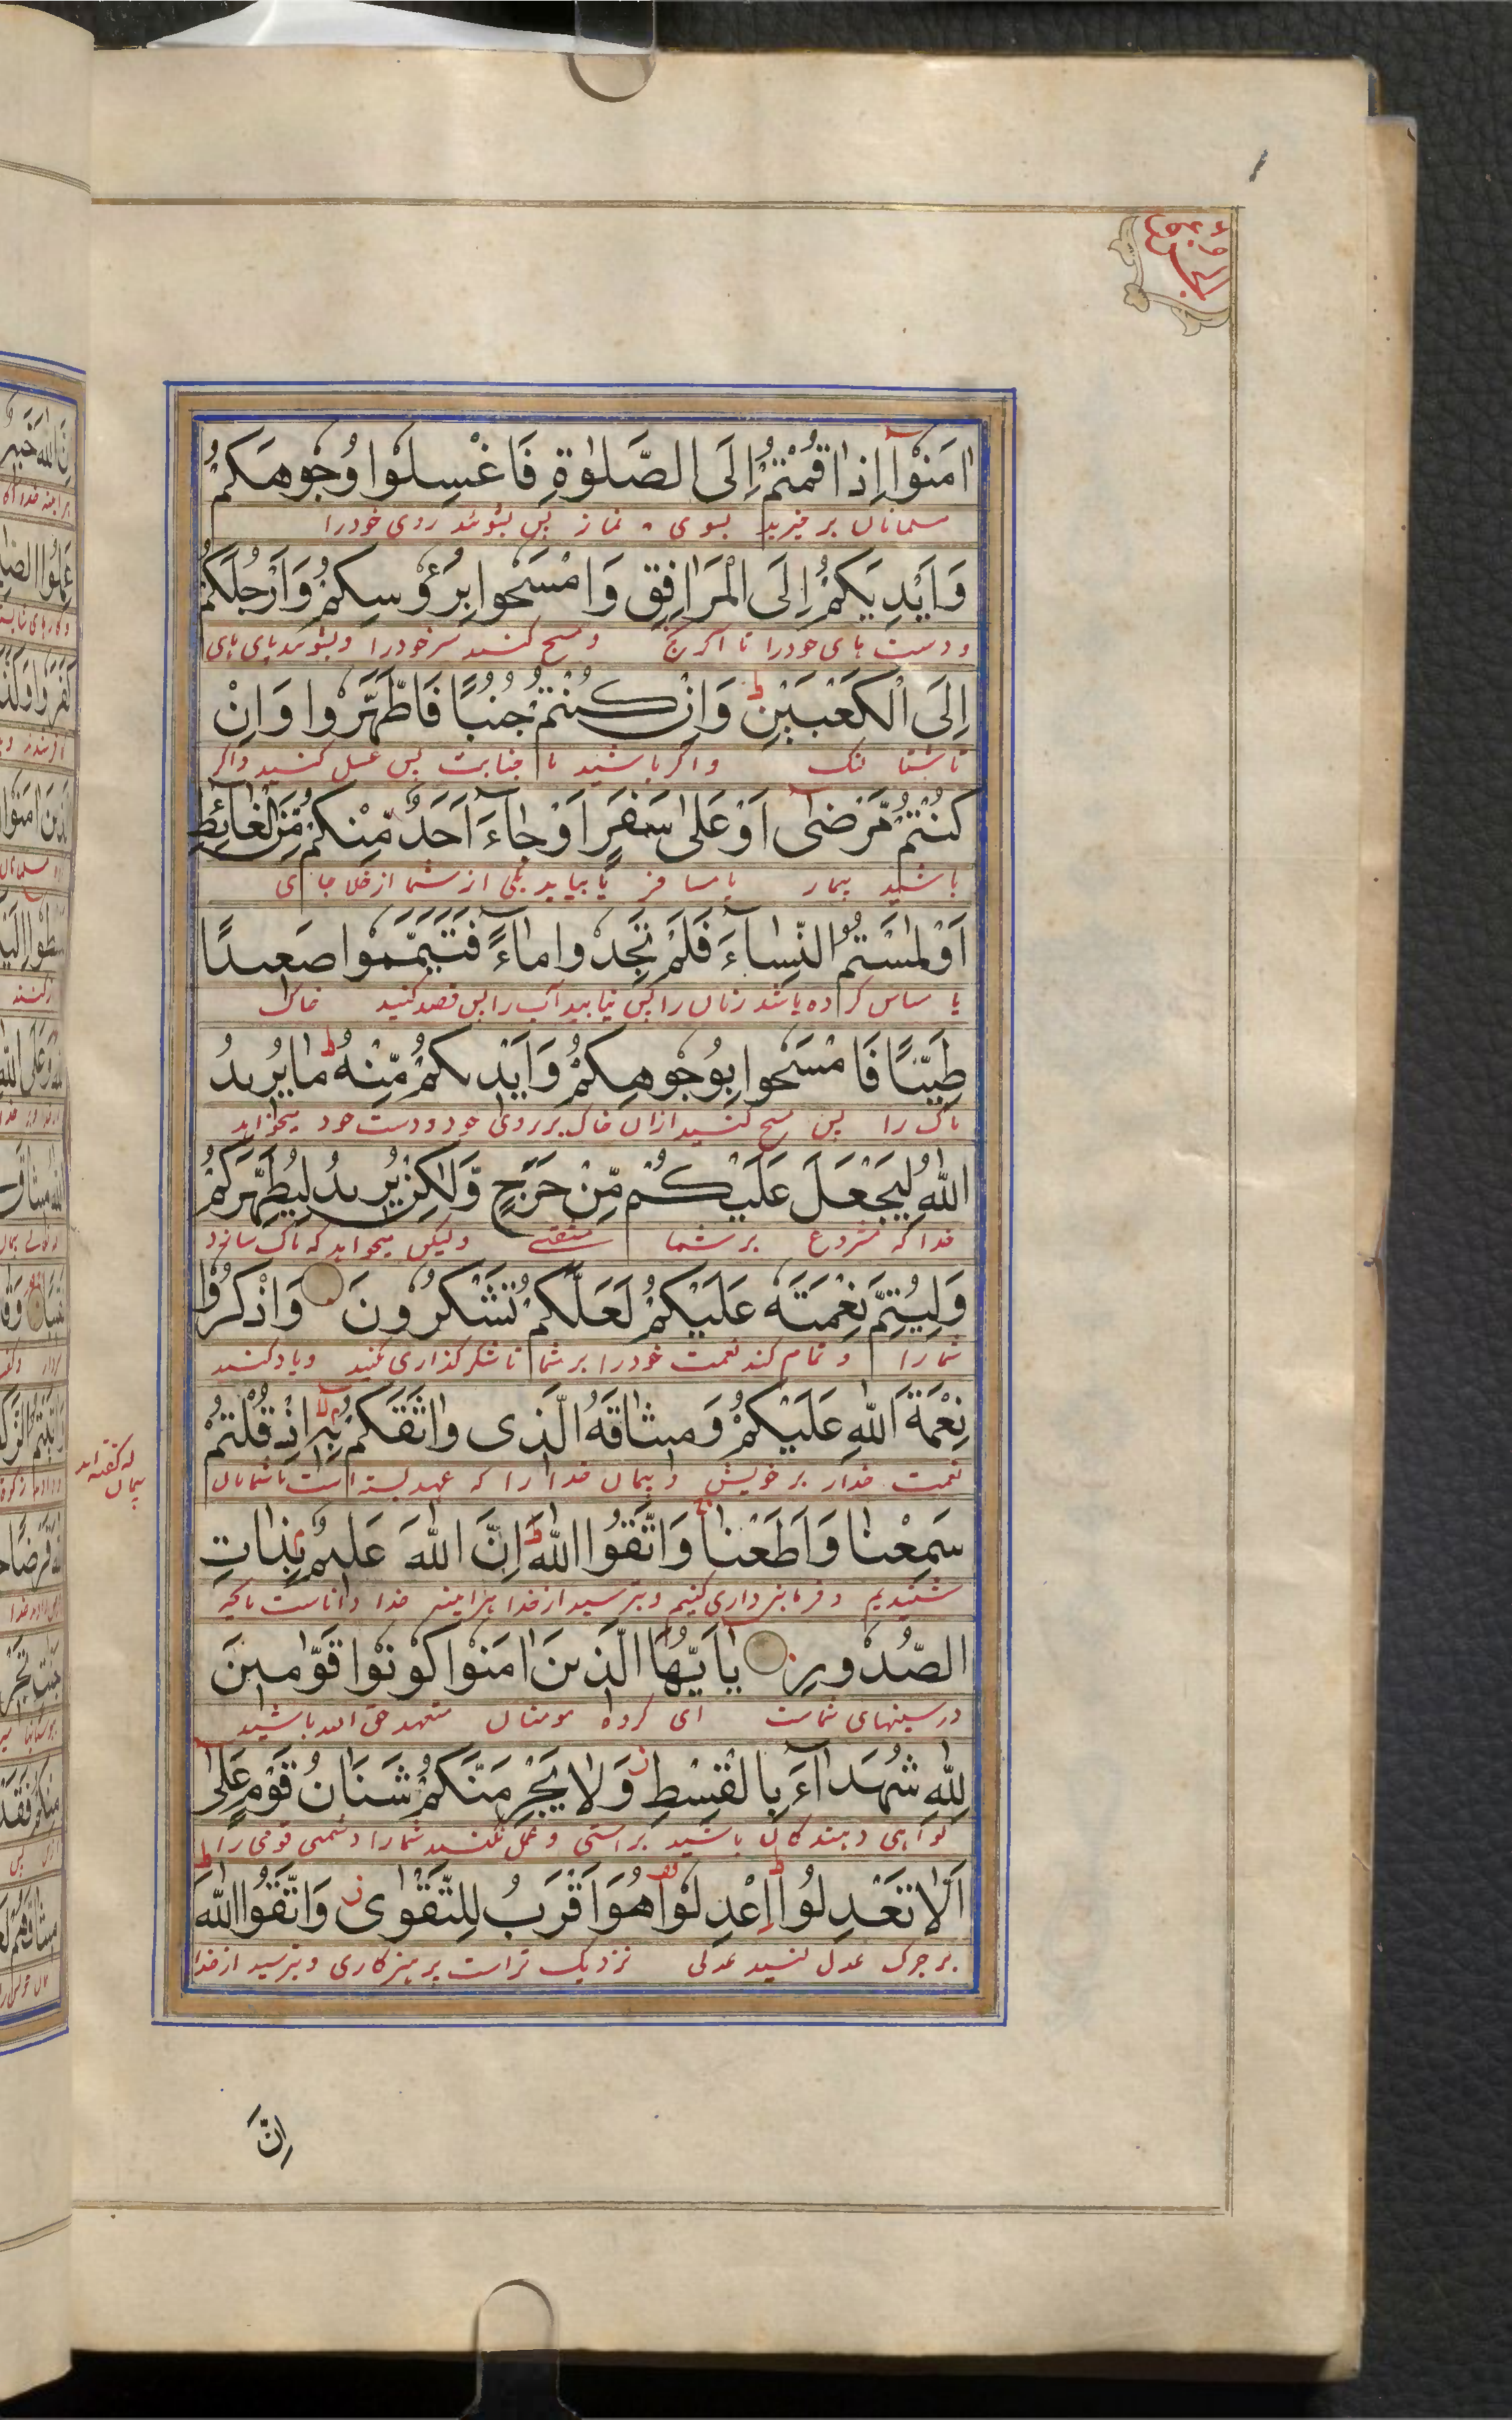 اٰمَنُوْۤا اِذَا قُمْتُمْ اِلَى الصَّلٰوةِ فَاغْسِلُوا وُجُوْهَكُمْ
مسلمانان برخیزید بسوی نماز پس بشوئید روی خودرا
وَاَيْدِيَكُمْ اِلَى الْمَرَافِقِ وَامْسَحُوا بِرُءُوْسِكُمْ وَاَرْجُلَكُمْ
ودست های خودرا تا آرنج ومسح کنید سر خودرا وبشوئید پای های
اِلَى الْكَعْبَيْنِ ط وَاِنْ كُنْتُمْ جُنُبًا فَاطَّهَّرُوا وَاِنْ
تا شتا لنک واگر باشید با جنابت پس غسل کنید واگر
كُنْتُمْ مَّرْضٰۤى اَوْ عَلٰى سَفَرٍ اَوْ جَآءَ اَحَدٌ مِّنْكُمْ مِّنَ الْغَآئِطِ
باشید بیمار یا مسافر یا بیاید یکی از شما از خلا جای
اَوْ لٰمَسْتُمُ النِّسَآءَ فَلَمْ تَجِدُوا مَآءً فَتَيَمَّمُوا صَعِيدًا
یا مساس کرده باشد زنان را پس نیابید آب را پس قصد کنید خاک
طَيِّبًا فَامْسَحُوا بِوُجُوْهِكُمْ وَاَيْدِيكُمْ مِّنْهُ ط مَا يُرِيدُ
پاک را پس مسح کنید ازان خاک بر روی خود ودست خود میخواهد
اللّٰهُ لِيَجْعَلَ عَلَيْكُمْ مِّنْ حَرَجٍ وَّلٰكِنْ يُرِيدُ لِيُطَهِّرَكُمْ
خدا که مشروع بر شما مشقتے ولیکن میخواهد که پاک سازد
وَلِيُتِمَّ نِعْمَتَهٗ عَلَيْكُمْ لَعَلَّكُمْ تَشْكُرُونَ وَاذْكُرُوْا
شمارا و تمام کند نعمت خودرا بر شما تا شکرگذاری کنید ویاد کنید
نِعْمَةَ اللّٰهِ عَلَيْكُمْ وَمِيثَاقَهُ الَّذِى وَاثَقَكُمْ بِهٖۤ لا اِذْ قُلْتُمْ
نعمت خدارا بر خویش و پیمان خدا را که عهد بسته است با شمایان
که گفته اید پیمان
سَمِعْنَا وَاَطَعْنَا وَاتَّقُوا اللّٰهَ ط اِنَّ اللّٰهَ عَلِيمٌ بِذَاتِ
شنیدیم وفرمانبرداری کنیم وبترسید از خدا هرآیینه خدا داناست بآنچه
الصُّدُوْرِ يٰۤاَيُّهَا الَّذِينَ اٰمَنُوا كُوْنُوْا قَوّٰمِينَ
در سینهای شماست ای گروه مومنان متعهد حق الله باشید
لِلّٰهِ شُهَدَآءَ بِالْقِسْطِ ز وَلَا يَجْرِمَنَّكُمْ شَنَاٰنُ قَوْمٍ عَلٰٓى
گواهی دهندگان باشید براستی وحمل نکنید شمارا دشمنی قومی را
اَلَّا تَعْدِلُوا ط اِعْدِلُوْا قف هُوَ اَقْرَبُ لِلتَّقْوٰى ز وَاتَّقُوا اللّٰهَ ط
عدل کنید عدلی نزدیک تراست بپرهیزکاری وبترسید از خدا
اِنَّ